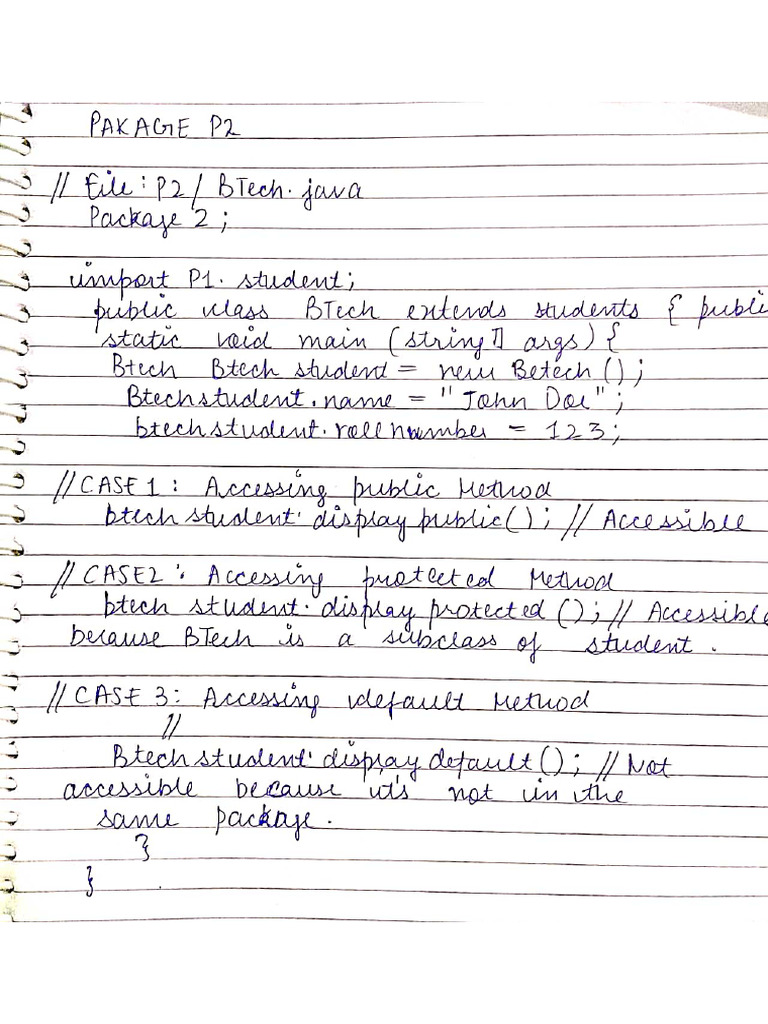 PAKAGE P2
// File: P2 / BTech.java
Package 2 ;
import P1. student;
public class BTech extends students { publi
static void main (string[] args) {
Btech Btech student = new Betech ();
Btechstudent.name = "John Doe" ;
btechstudent.rollnumber = 123;
//CASE 1 : Accessing public Method
btech student. display public(); // Accessible
// CASE2 : Accessing protected Method
btech student. display protected (); // Accessible
because BTech is a subclass of student .
// CASE 3: Accessing default Method
//
Btech student. display default(); // Not
accessible because it's not in the
same package.
}
}